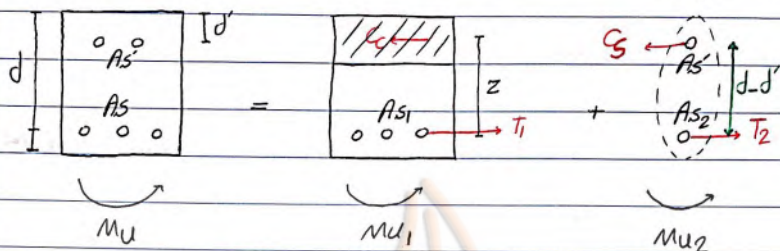 d d' As' As = Cc z As1 T1 + Cs As' d-d' As2 T2
Mu Mu1 Mu2